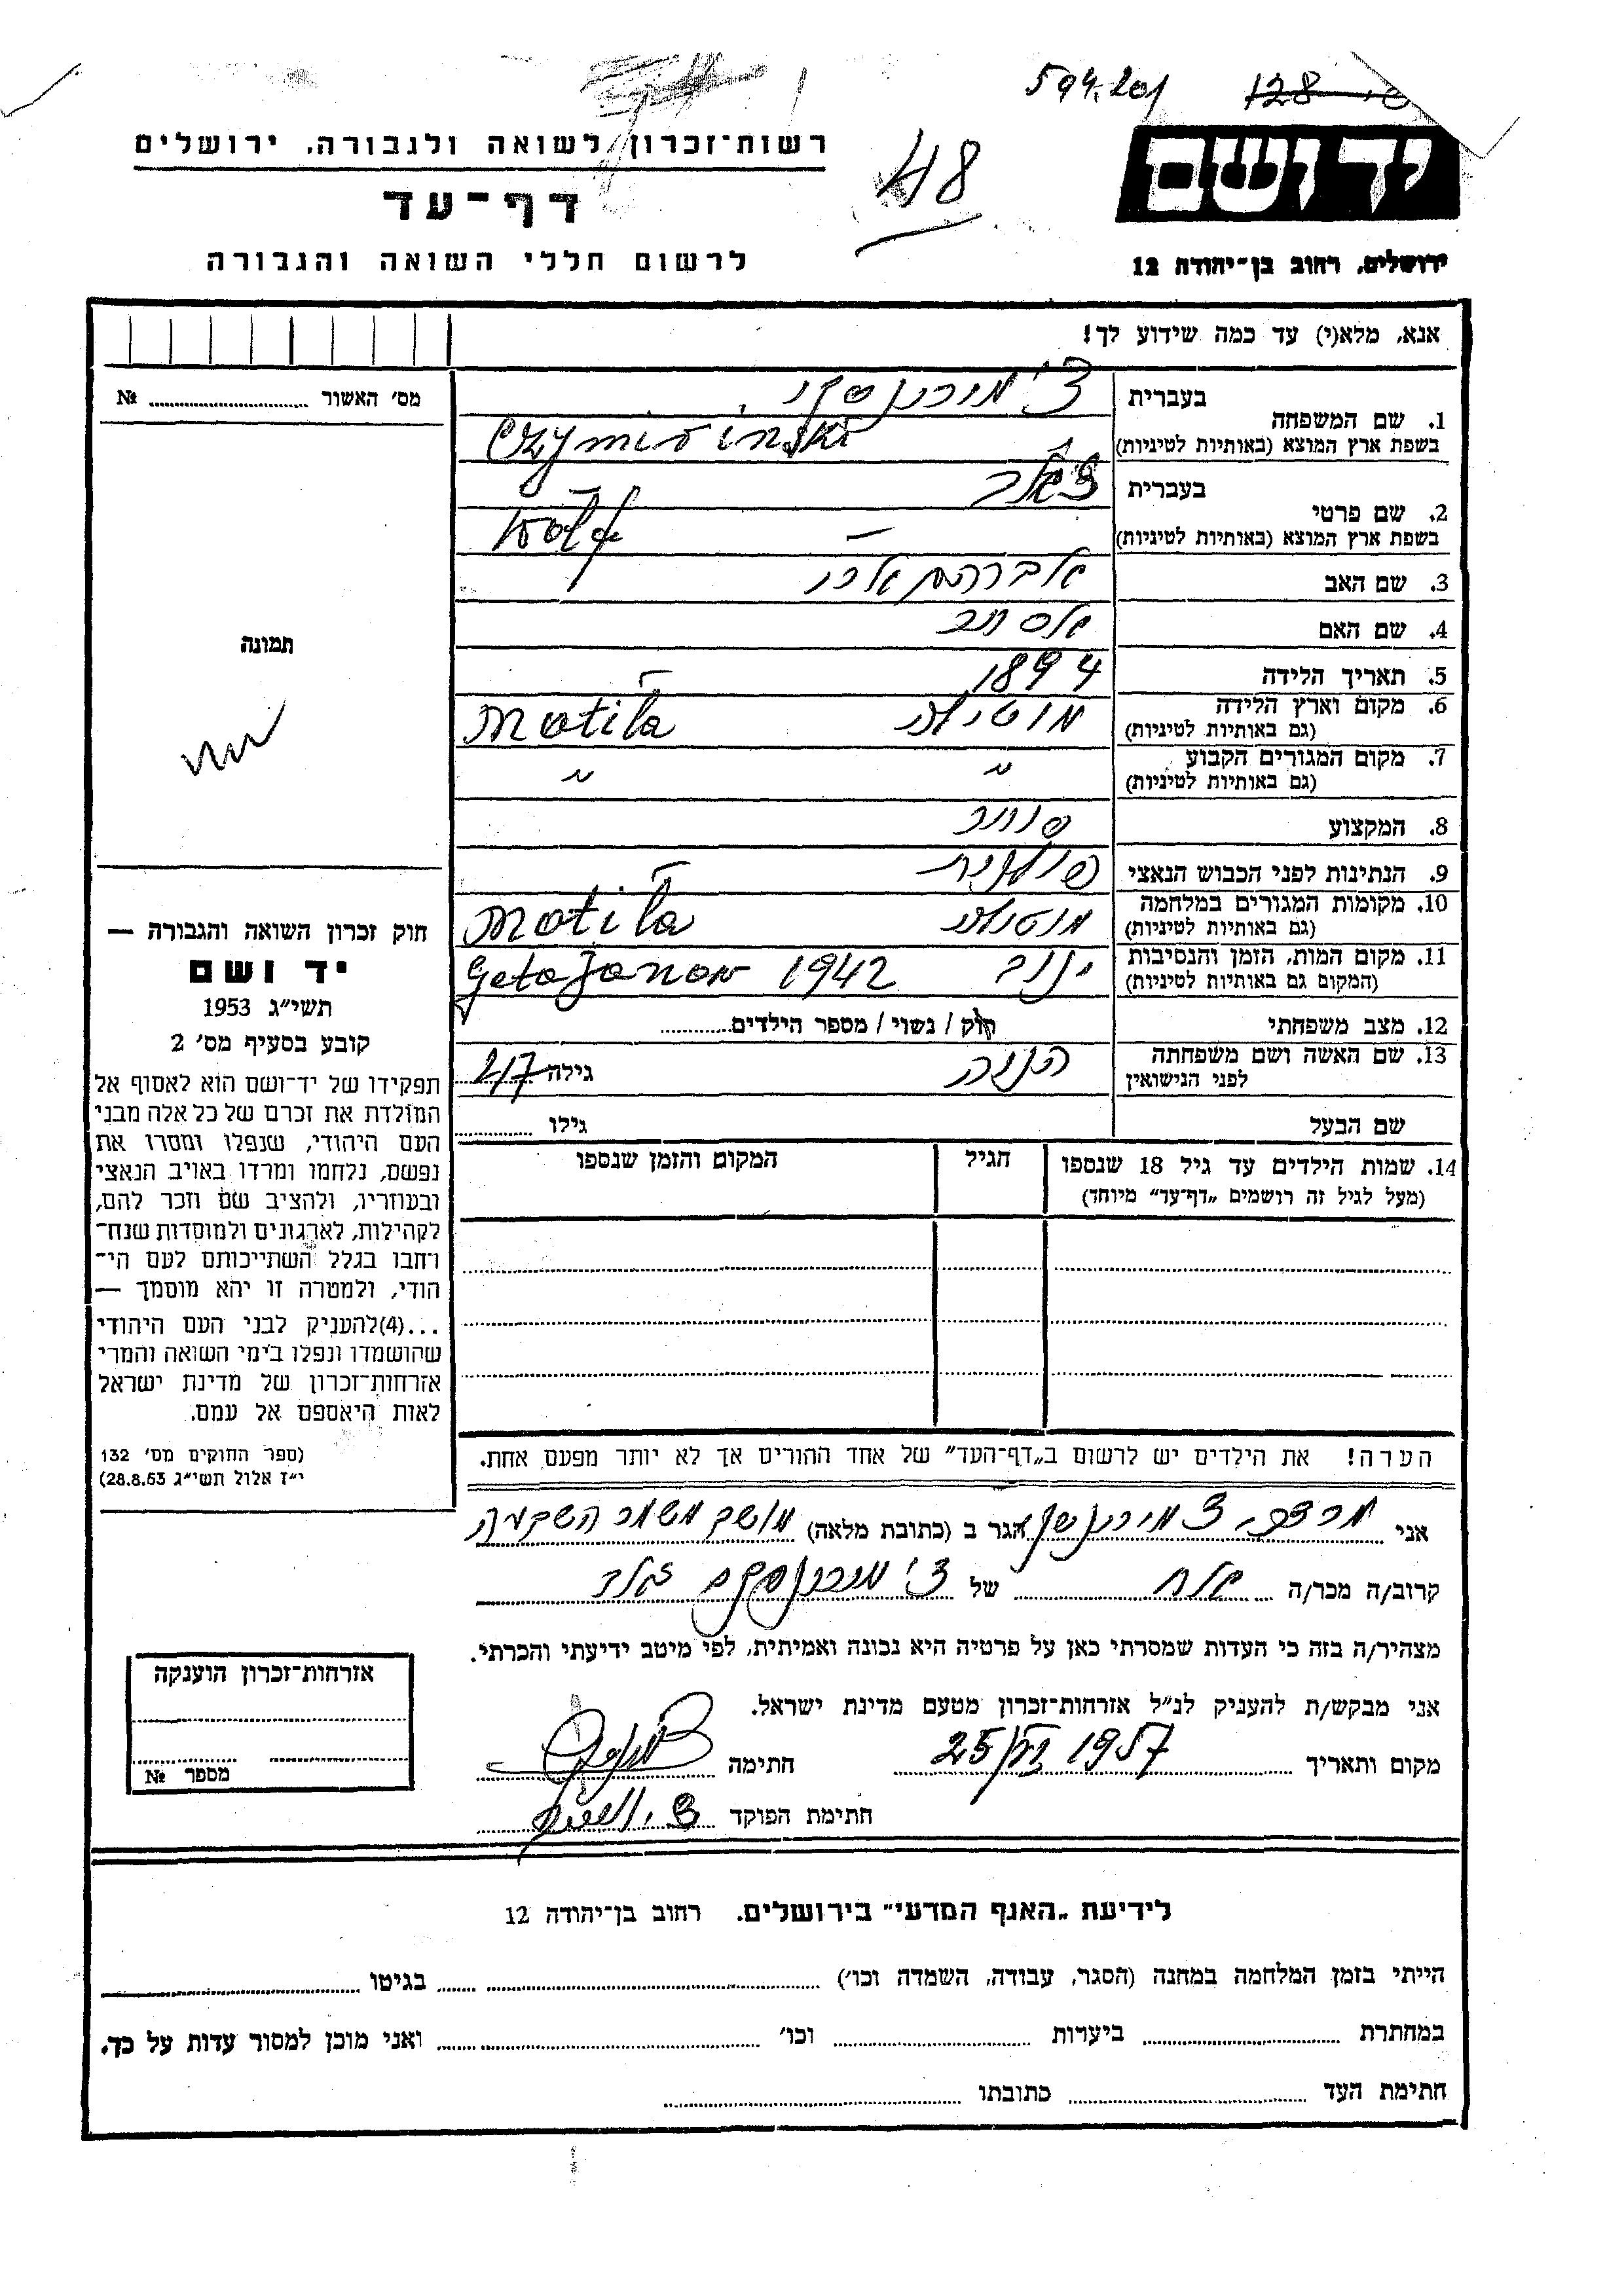 594.201
128
48
יד ושם
ירושלים, רחוב בן־יהודה 12
רשות־זכרון לשואה ולגבורה, ירושלים
דף־עד
לרשום חללי השואה והגבורה
אנא, מלא(י) עד כמה שידוע לך!
1. שם המשפחה בעברית
בשפת ארץ המוצא (באותיות לטיניות)
2. שם פרטי בעברית
בשפת ארץ המוצא (באותיות לטיניות) Wolf
3. שם האב
4. שם האם
5. תאריך הלידה 1894
6. מקום וארץ הלידה
(גם באותיות לטיניות) Motila
7. מקום המגורים הקבוע
(גם באותיות לטיניות) " "
8. המקצוע סוחר
9. הנתינות לפני הכבוש הנאצי פולנית
10. מקומות המגורים במלחמה
(גם באותיות לטיניות) Motila
11. מקום המות, הזמן והנסיבות
(המקום גם באותיות לטיניות) Geto Janow 1942 ינוב
12. מצב משפחתי רוק / נשוי / מספר הילדים
13. שם האשה ושם משפחתה
לפני הנישואין גילה 47
שם הבעל גילו
14. שמות הילדים עד גיל 18 שנספו הגיל המקום והזמן שנספו
(מעל לגיל זה רושמים „דף־עד״ מיוחד)
הערה! את הילדים יש לרשום ב„דף־העד״ של אחד ההורים אך לא יותר מפעם אחת.
אני מרדכי הגר ב (כתובת מלאה) מושב משמר השבעה
קרוב/ה מכר/ה אח של
מצהיר/ה בזה כי העדות שמסרתי כאן על פרטיה היא נכונה ואמיתית, לפי מיטב ידיעתי והכרתי.
אני מבקש/ת להעניק לנ״ל אזרחות־זכרון מטעם מדינת ישראל.
מקום ותאריך 1957 חתימה
חתימת הפוקד
מס׳ האשור №
תמונה
חוק זכרון השואה והגבורה —
יד ושם
תשי״ג 1953
קובע בסעיף מס׳ 2
תפקידו של יד־ושם הוא לאסוף אל
המולדת את זכרם של כל אלה מבני
העם היהודי, שנפלו ומסרו את
נפשם, נלחמו ומרדו באויב הנאצי
ובעוזריו, ולהציב שם וזכר להם,
לקהילות, לארגונים ולמוסדות שנח־
רחבו בגלל השתייכותם לעם הי־
הודי, ולמטרה זו יהא מוסמך —
...(4)להעניק לבני העם היהודי
שהושמדו ונפלו בימי השואה והמרי
אזרחות־זכרון של מדינת ישראל
לאות היאספם אל עמם.
(ספר החוקים מס׳ 132
י״ז אלול תשי״ג 28.8.53)
אזרחות־זכרון הוענקה
מספר №
לידיעת „האגף המדעי״ בירושלים. רחוב בן־יהודה 12
הייתי בזמן המלחמה במחנה (הסגר, עבודה, השמדה וכו׳) בגיטו
במחתרת ביערות וכו׳ ואני מוכן למסור עדות על כך.
חתימת העד כתובתו